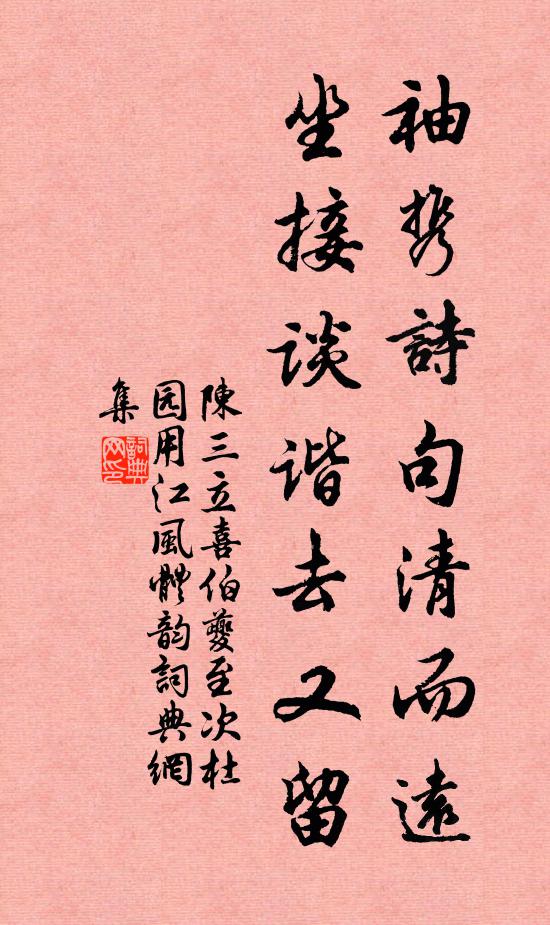 袖携詩句清而遠
坐接谈谐去又留
陳三立喜伯夔至次杜
园用江風體韵詞典網
集
詞典網印